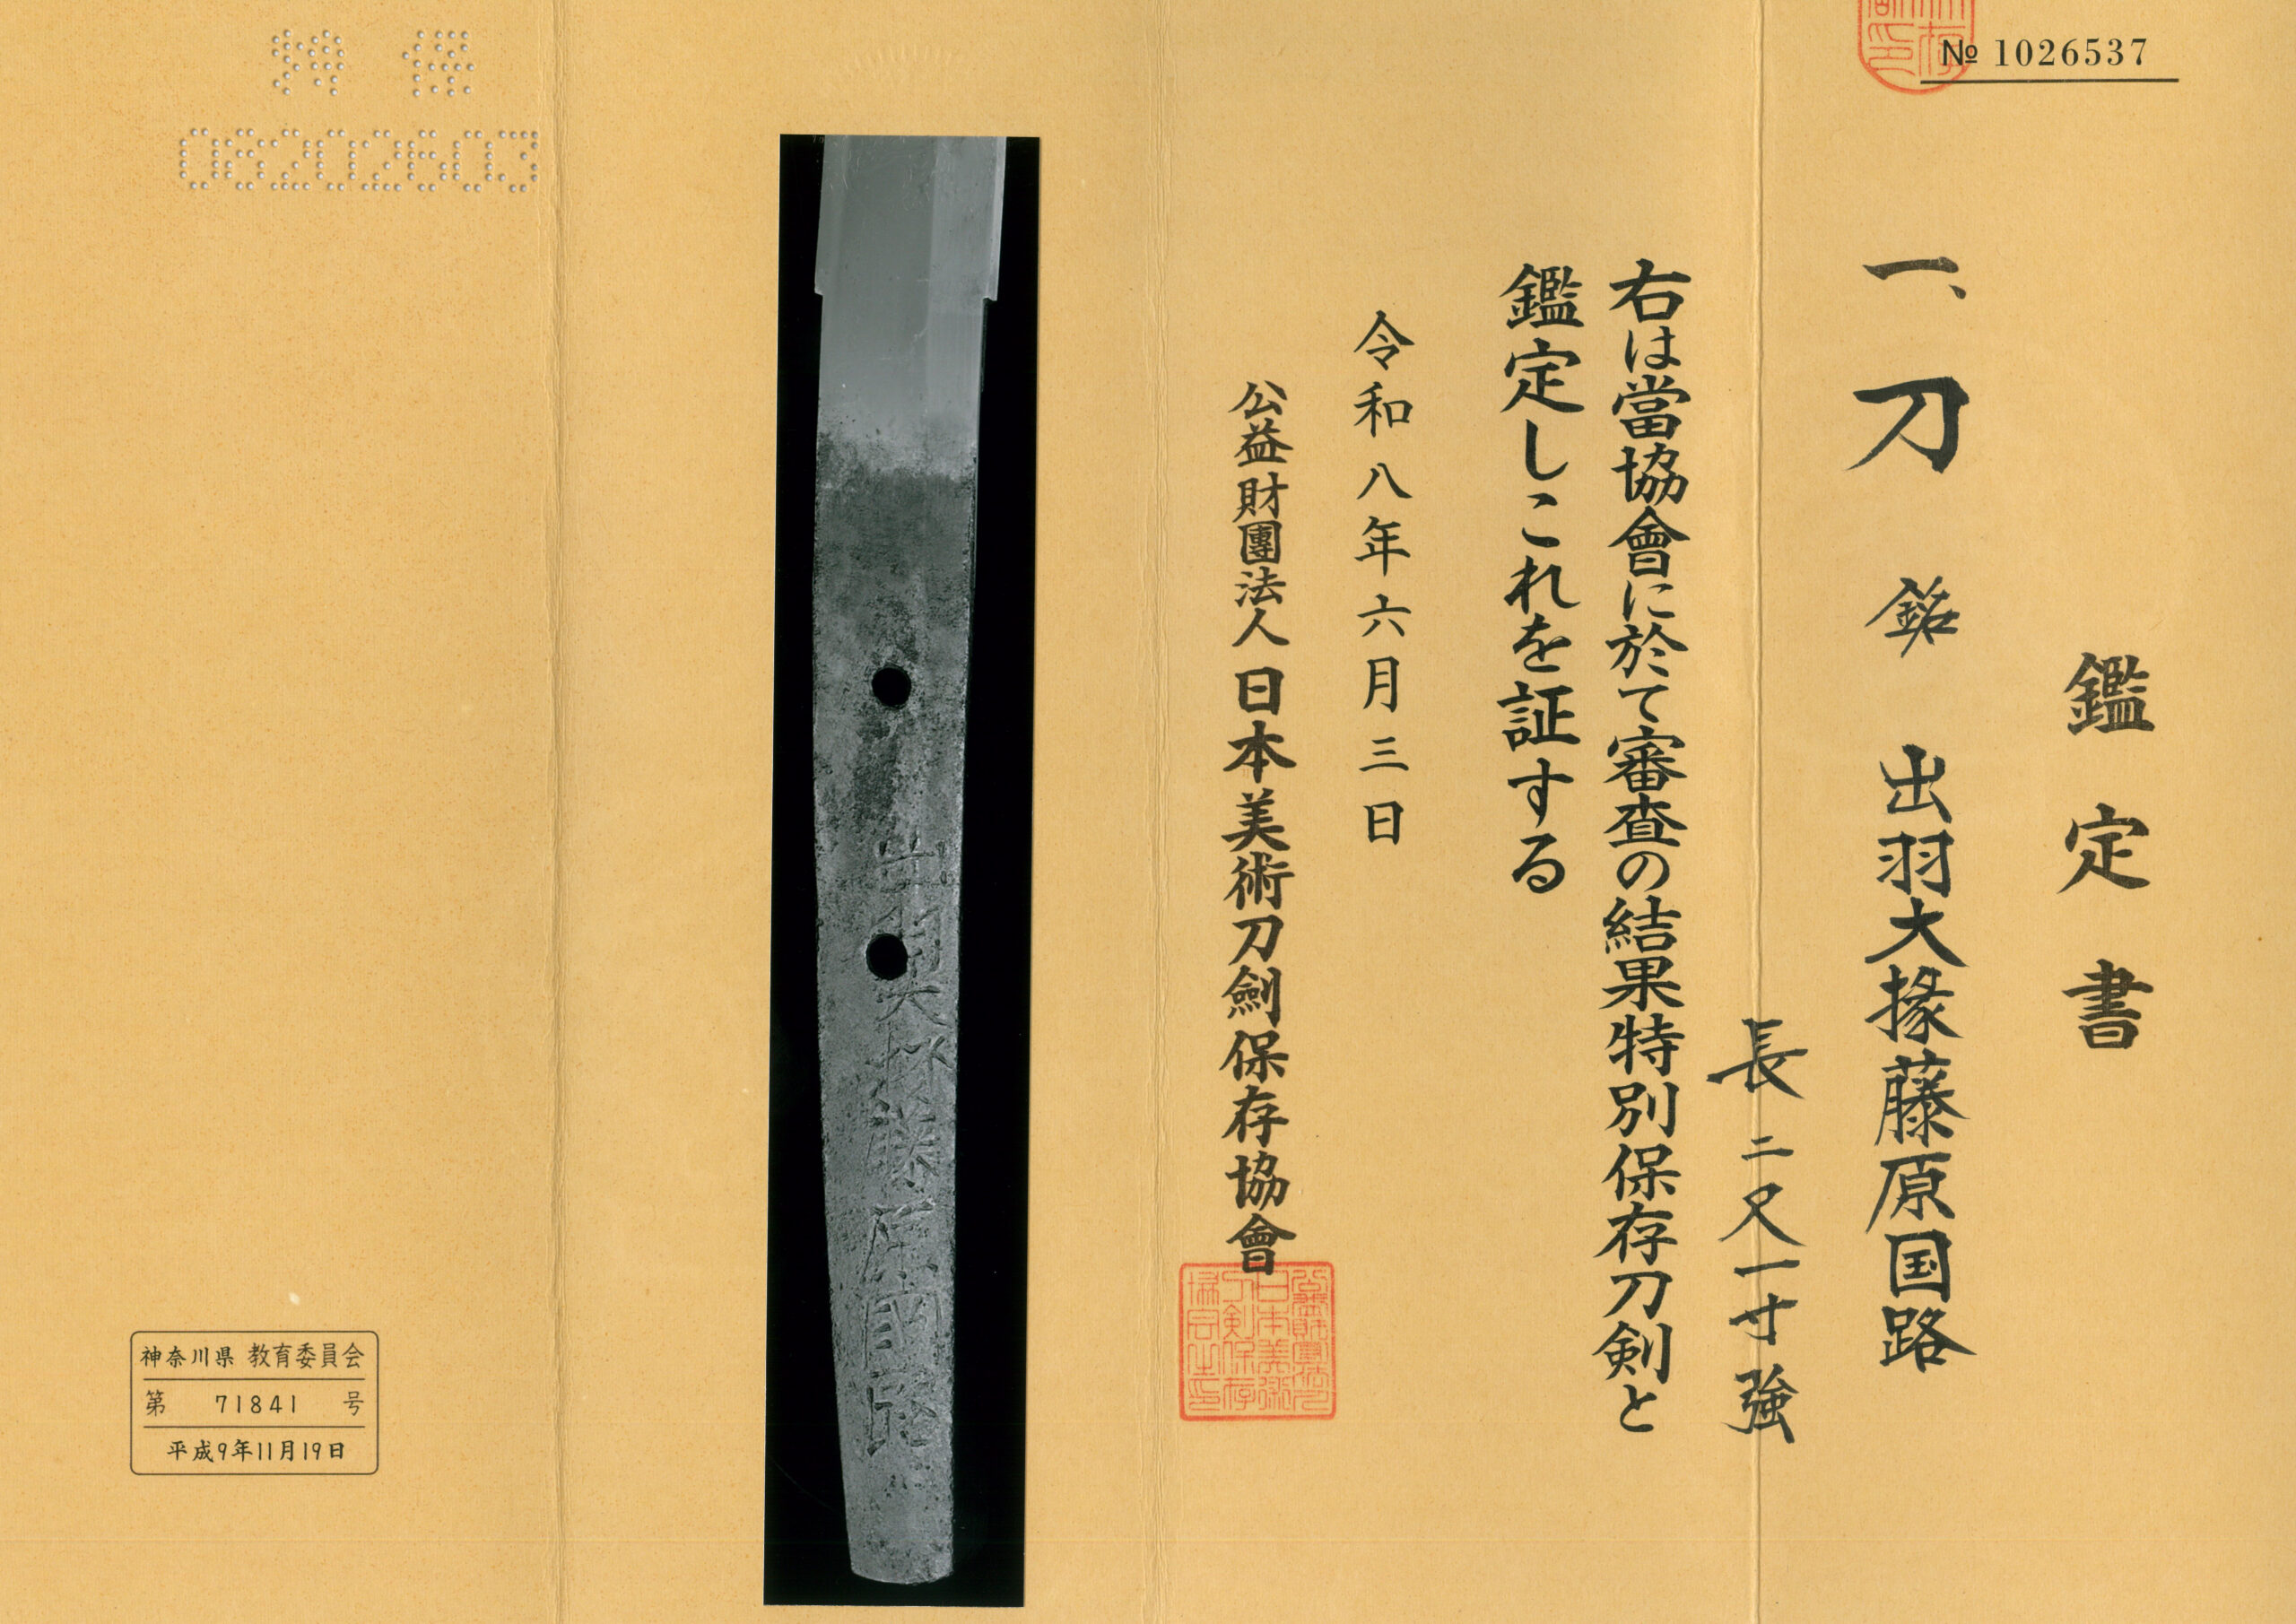 № 1026537
鑑定書
一、刀 銘 出羽大掾藤原国路
長二尺一寸強
右は當協會に於て審査の結果特別保存刀剣と
鑑定しこれを証する
令和八年六月三日
公益財團法人日本美術刀劍保存協會
出羽大掾藤原國路
特保
06202603
神奈川県 教育委員会
第 71841 号
平成9年11月19日